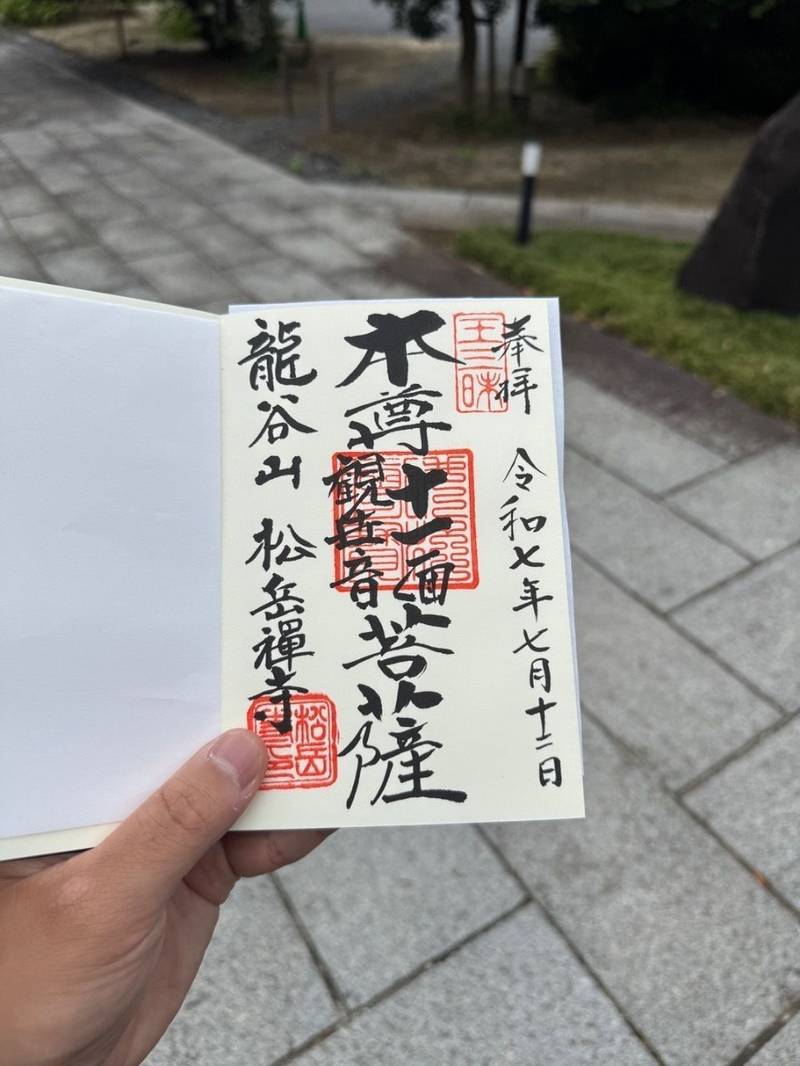 奉拝 令和七年七月十二日
王三昧
本尊十一面観世音菩薩
龍谷山 松岳禪寺
松岳